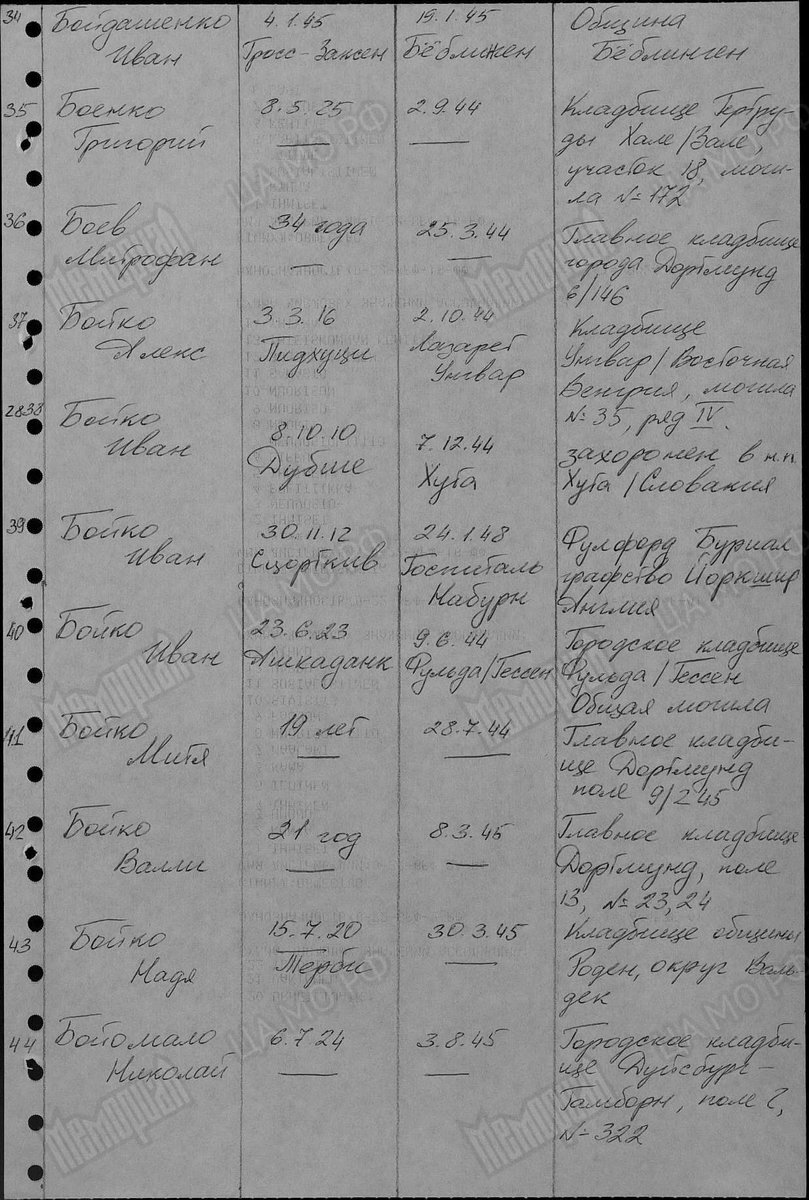 34 Бойдашенко 4.1.45 19.1.45 Община
Иван Гросс-Заксен Бёближен Бёблинген
35 Боенко 8.5.25 2.9.44 Кладбище Гертру-
Григорий — — ды Хале/Зале,
участок 18, моги-
ла №172
36 Боев 34 года 25.3.44 Главное кладбище
Митрофан — — города Дортмунд
6/146
37 Бойко 3.3.16 2.10.44 Кладбище
Алекс Пидхуци Лазарет Унгвар/Восточная
Унгвар Венгрия, могила
№35, ряд IV.
38 Бойко 8.10.10 7.12.44 захоронен в н.п.
Иван Дубше Хута Хута/Словакия
39 Бойко 30.11.12 24.1.48 Фулфорд Буриал
Иван Сцорткив Госпиталь графство Йоркшир
Набурн Англия
40 Бойко 23.6.23 9.6.44 Городское кладбище
Иван Ашкаданк Фульда/Гессен Фульда/Гессен
Общая могила
41 Бойко 19 лет 28.7.44 Главное кладби-
Митя — — ще Дортмунд
поле 9/245
42 Бойко 21 год 8.3.45 Главное кладбище
Валли — — Дортмунд, поле
13, №23,24
43 Бойко 15.7.20 30.3.45 Кладбище общины
Надя Терби — Роден, округ Валь-
дек
44 Бойомало 6.7.24 3.8.45 Городское кладби-
Николай — — ще Дуйсбург-
Гамборн, поле 2,
№322
Мемориал
ЦАМО РФ